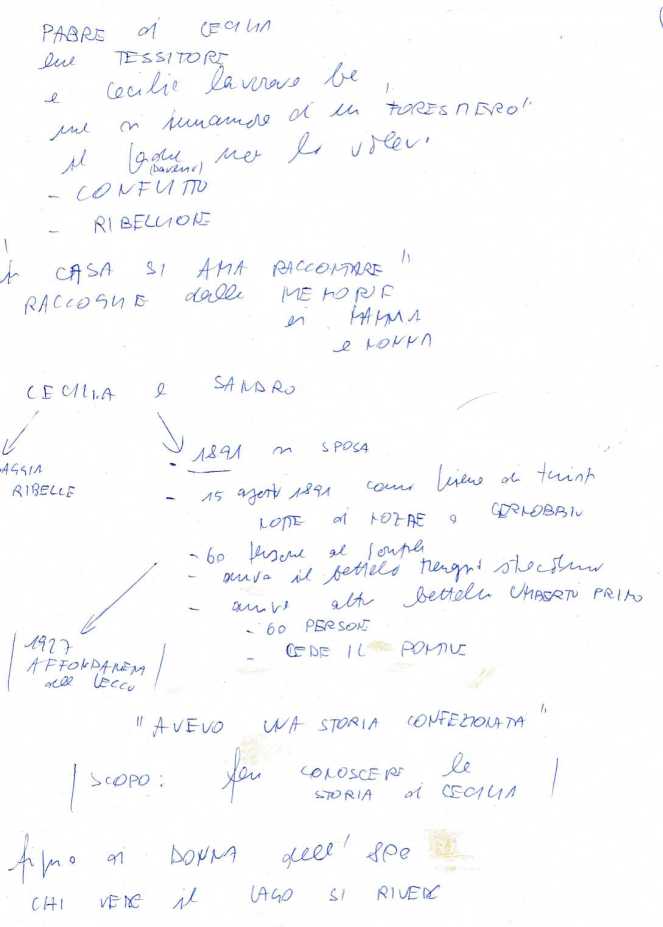 PADRE di CECILIA
era TESSITORE
e Cecilia lavorava
si innamora di un "FORESTIERO"
il padre non lo voleva
- CONFLITTO
- RIBELLIONE
CASA SI AMA RACCONTARE"
RACCOGLIE dalle MEMORIE
di MAMMA
e NONNA
CECILIA e SANDRO
RIBELLE
- 1891 si SPOSA
- 15 agosto 1891 come pieno di turisti
NOTTE di NOZZE a CERNOBBIO
- 60 persone al
- arriva il battello
- arriva altro battello UMBERTO PRIMO
- 60 PERSONE
- CEDE IL PONTILE
1927
AFFONDAMENTO
del LECCO
"AVEVO UNA STORIA CONFEZIONATA"
SCOPO: far CONOSCERE la
STORIA di CECILIA
di DONNA dell'
CHI VEDE il LAGO SI RIVEDE